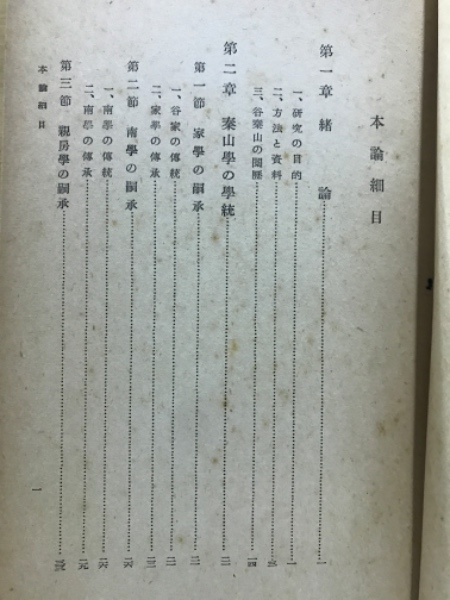 本論細目
第一章 緒論……一
一、研究の目的……一
二、方法と資料……
三、谷秦山の閲歴……一四
第二章 秦山學の學統……
第一節 家學の嗣承……
一、谷家の傳統……
二、家學の傳承……
第二節 南學の嗣承……
一、南學の傳統……
二、南學の傳承……
第三節 親房學の嗣承……
本論細目
一